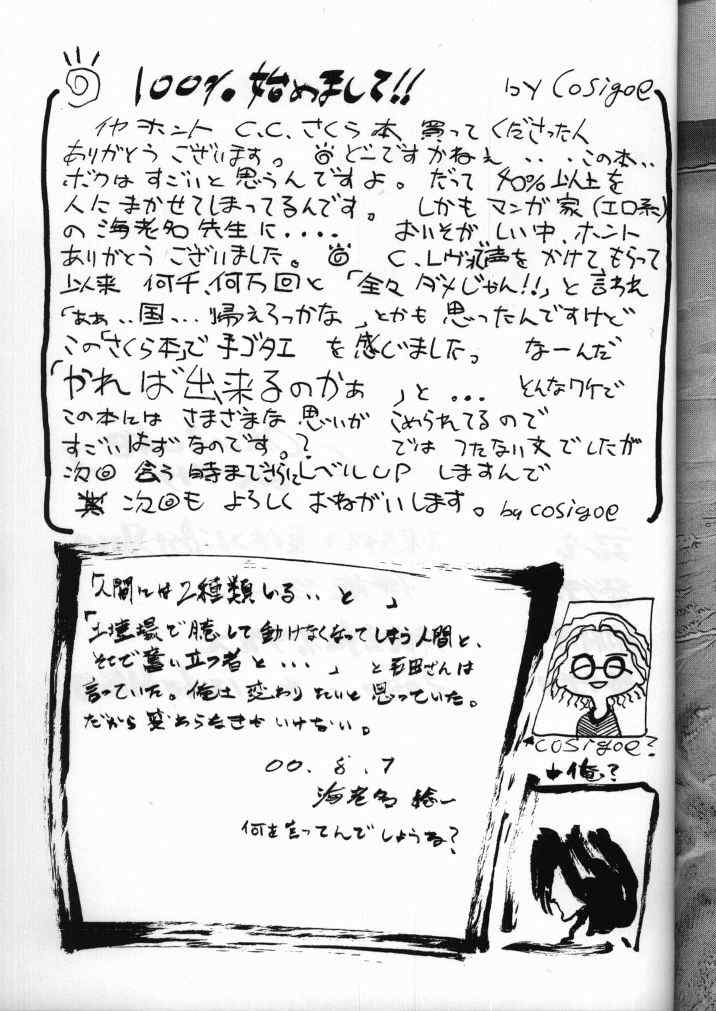 100% 始めまして!! by Cosigoe
イヤ ホント C.C.さくら本 買って くださった人
ありがとう ございます。 どーですかねぇ ・・・この本・・
ボクは すごいと思うんですよ。 だって 40%以上を
人に まかせてしまってるんです。 しかも マンガ家(エロ系)
の 海老名先生に・・・・ おいそがしい中、ホント
ありがとう ございました。 C.Lヴ 声を かけて もらって
以来 何千、何万回と 「全々 ダメじゃん!!」と 言われ
「あぁ・・国・・・帰えろっかな」とかも 思ったんですけど
この「さくら本」で 手ゴタエ を感じました。 なーんだ
「やれば出来るのかぁ」と・・・ とんなワケで
この本には さまざまな 思いが こめられてるので
すごいはず なのです。? では つたない文でしたが
次回 会う時まで さらに レベルUP しますんで
次回も よろしく おねがいします。 by cosigoe
「人間には2種類いる・・と」
「土壇場で臆して動けなくなってしまう人間と、
そこで奮い立つ者と・・・」 と 毛田さんは
言っていた。俺は 変わりたいと思っていた。
だから 変わらなきゃいけない。
00.8.7
海老名 総一
何を言ってんでしょうね?
↑cosigoe?
↓俺?